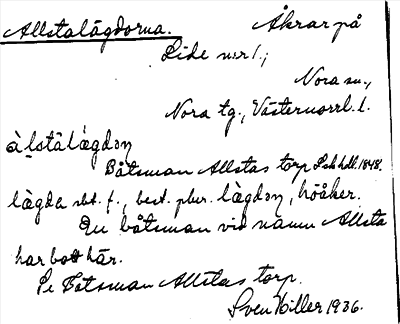 Allstalägdorna. Åkrar på
Lide nr 1.;
Nora sn.,
Nora tg., Västernorrl. l.
àlstàlæ̀gdəņ
Båtsman Allstas torp Lskhdl. 1848.
læ̀gda sbt. f., best. plur. læ̀gdəņ, höåker.
En båtsman vid namn Allsta
har bott här.
Se Båtsman Allstas torp.
Sven Hiller 1936.